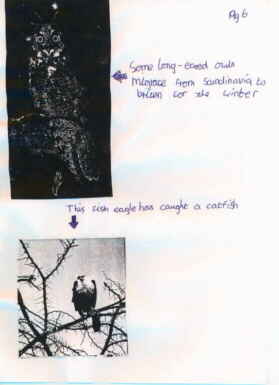 Pg 6
Some long-eared owls
migrate from Scandinavia to
britain for the winter
This fish eagle has caught a catfish